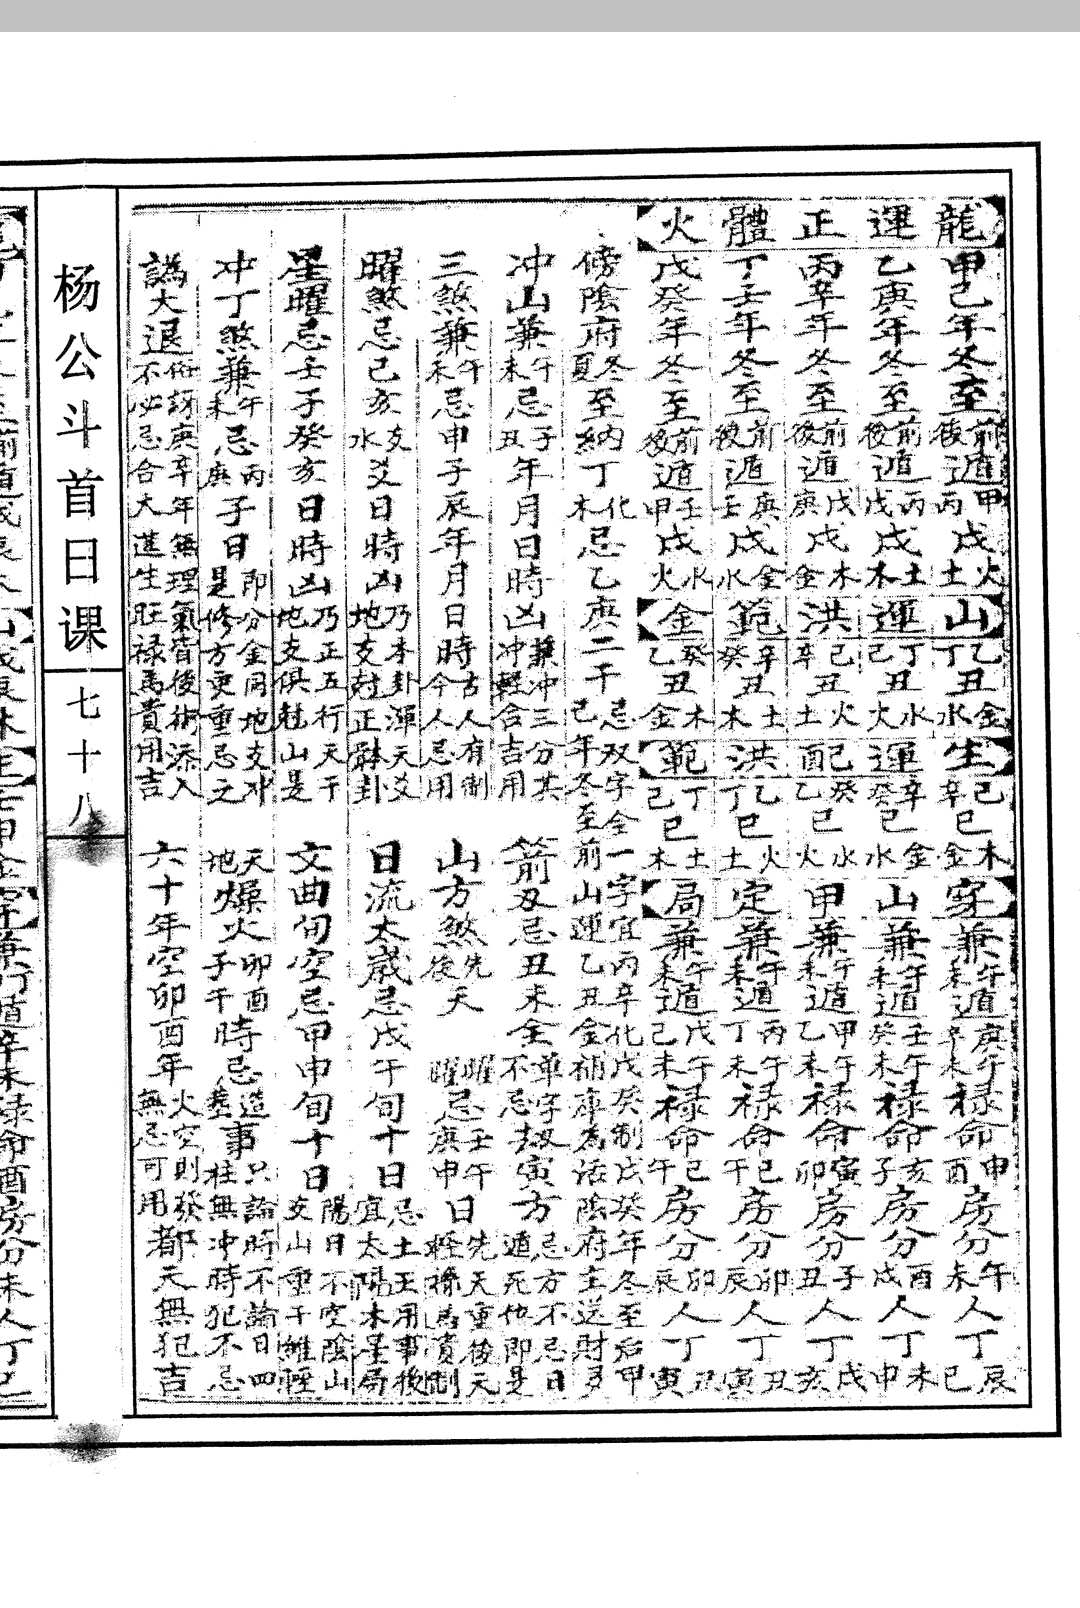 龍運正體火
甲己年冬至前後遁甲丙戌火土
乙庚年冬至前後遁丙戊戌土木
丙辛年冬至前後遁戊庚戌木金
丁壬年冬至前後遁庚壬戌金水
戊癸年冬至前後遁壬甲戌水火
山運洪範金
乙丁丑金水
丁己丑水火
己辛丑火土
辛癸丑土木
癸乙丑木金
生運配洪範
己辛巳木金
辛癸巳金水
癸乙巳水火
乙丁巳火土
丁己巳土木
穿山甲定局
兼午未遁庚午辛未禄命申酉房分午未人丁辰巳
兼午未遁壬午癸未禄命亥子房分酉戌人丁未申
兼午未遁甲午乙未禄命寅卯房分子丑人丁戌亥
兼午未遁丙午丁未禄命巳午房分卯辰人丁丑寅
兼午未遁戊午己未禄命巳午房分卯辰人丁丑寅
傍陰府冬夏至納丁化木忌乙庚二干忌双字全一字宜丙辛化戊癸制戊癸年冬至后甲己年冬至前山運乙丑金補庫為活陰府主送財多
冲山兼午未忌子丑年月日時凶兼冲三分其冲輕合吉用
箭刃忌丑未全單字刃不忌劫寅方忌方不忌日遁死他即是
三煞兼午未忌申子辰年月日時古人有制今人忌用
山方煞先後天曜曜忌壬午庚申日先天重後天輕祿馬貴制
曜煞忌己亥支水爻日時凶乃本卦渾天爻地支尅正體卦
日流太歲忌戊午旬十日忌土王用事後宜太陽木星局
星曜忌壬子癸亥日時凶乃正五行天干地支俱尅山是
文曲旬空忌甲申旬十日陽日不空陰山交山重于維輕
冲丁煞兼午未忌丙庚子日即分金同地支冲是修方更重忌之
天地燥火卯酉子午時忌造葬事只論時不論日四柱無冲時犯不忌
譌大退俗訝庚辛年無理氣皆後術添入不必忌合大進生旺禄馬貴用吉
六十年空卯酉年火空則發無忌可用都天無犯吉
杨公斗首日课
七十八